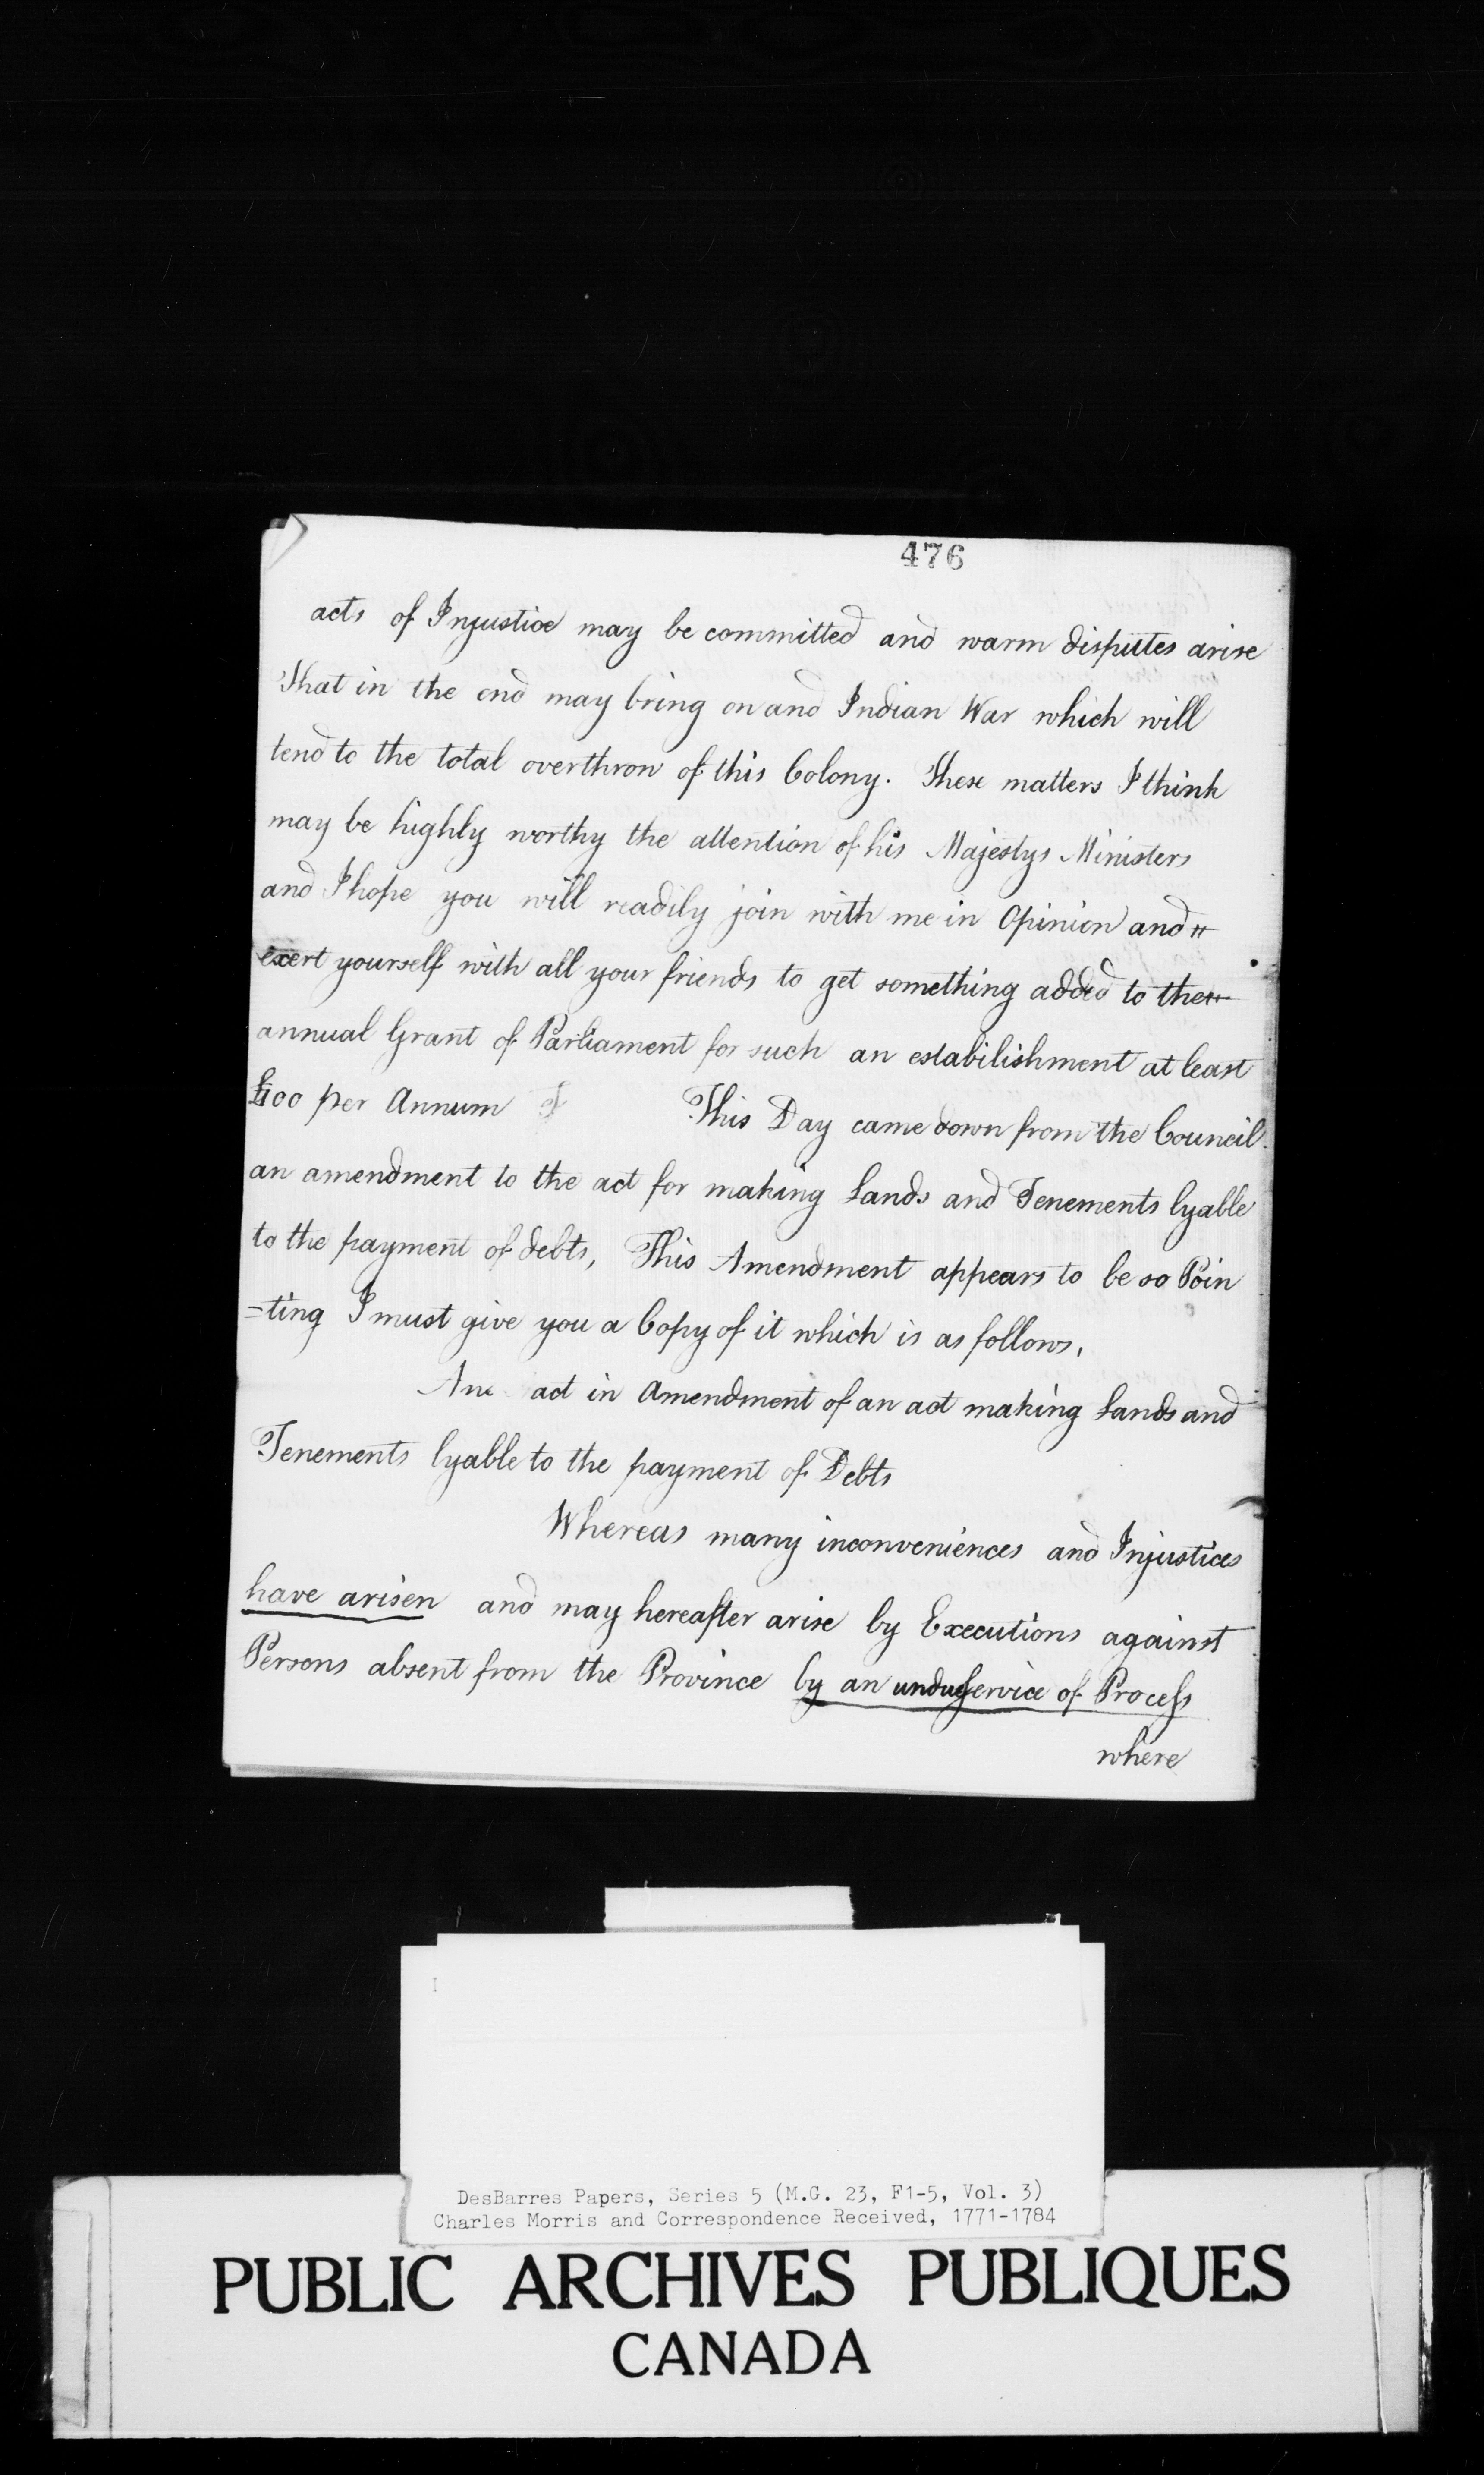 476
acts of Injustice may be committed and warm disputes arise
That in the end may bring on and Indian War which will
tend to the total overthrow of this Colony. These matters I think
may be highly worthy the attention of his Majestys Ministers
and I hope you will readily join with me in Opinion and
exert yourself with all your friends to get something added to the
annual Grant of Parliament for such an establilishment at least
£100 per Annum This Day came down from the Council
an amendment to the act for making Lands and Tenements lyable
to the payment of debts, This Amendment appears to be so Poin
=ting I must give you a Copy of it which is as follows,
An act in amendment of an act making Lands and
Tenements lyable to the payment of Debts
Whereas many inconveniences and Injustices
have arisen and may hereafter arise by Executions against
Persons absent from the Province by an undue service of Process
where
DesBarres Papers, Series 5 (M.G. 23, F1-5, Vol. 3)
Charles Morris and Correspondence Received, 1771-1784
PUBLIC ARCHIVES PUBLIQUES
CANADA